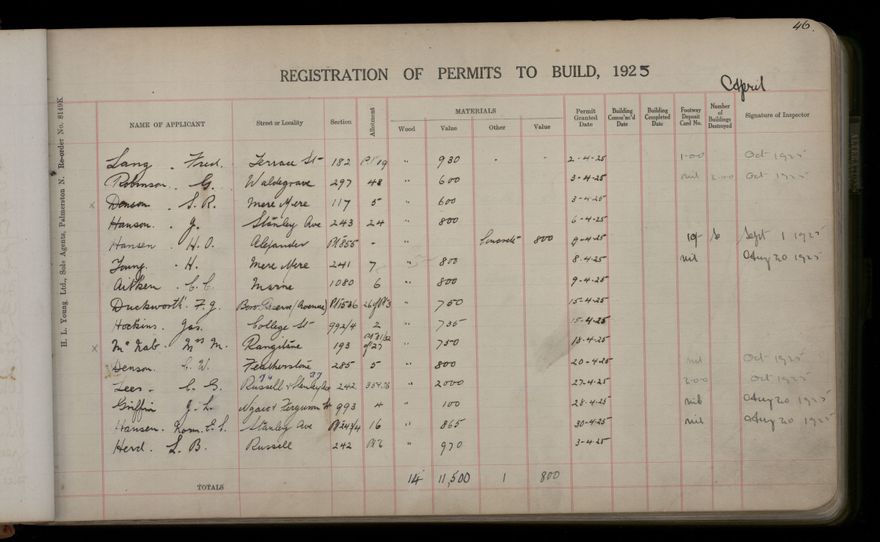 46.
REGISTRATION OF PERMITS TO BUILD, 1925
April
H. L. Young Ltd., Sole Agents, Palmerston N. Re-order No. 8149K
NAME OF APPLICANT Street or Locality Section Allotment MATERIALS Wood Value Other Value Permit Granted Date Building Comm'nc'd Date Building Completed Date Footway Deposit Card No. Number of Buildings Destroyed Signature of Inspector
Lang . Fred. Terrace St 182 Pt 19 " 980 - - 2-4-25 1.00 Oct 1925
Robinson . G. Waldegrave 297 48 " 600 3-4-25 nil 2.00 Oct 1925
x Denson . S. R. Mere Mere 117 5 " 600 3-4-25
Hanson . J. Stanley Ave 243 24 " 800 6-4-25
Hansen . H. O. Alexander Pt 855 - " Concrete 800 9-4-25 Sept 1 1925
Young . H. Mere Mere 241 7 " 800 8-4-25 nil Aug 20 1925
Aitken . C. C. Marne 1080 6 " 800 9-4-25
Duckworth . F. J. (Avenue) " 750 15-4-25
Hockins . Jas. College St 992/4 2 " 735 15-4-25
x McNab . Mrs M. Rangitane 193 " 750 13-4-25
Denson . W. Featherston 285 5 " 800 20-4-25 nil Oct 1925
Lees . C. G. Russell & Stanley Ave 242 " 2000 27-4-25 2.00 Oct 1925
Griffin J. L. Ngaio & Ferguson St 993 4 " 100 28-4-25 nil Aug 20 1925
Hansen . Stanley Ave 16 " 865 30-4-25 nil Aug 20 1925
Herd . L. B. Russell 242 Pt 6 " 970 3-4-25
TOTALS 14 11,500 1 800